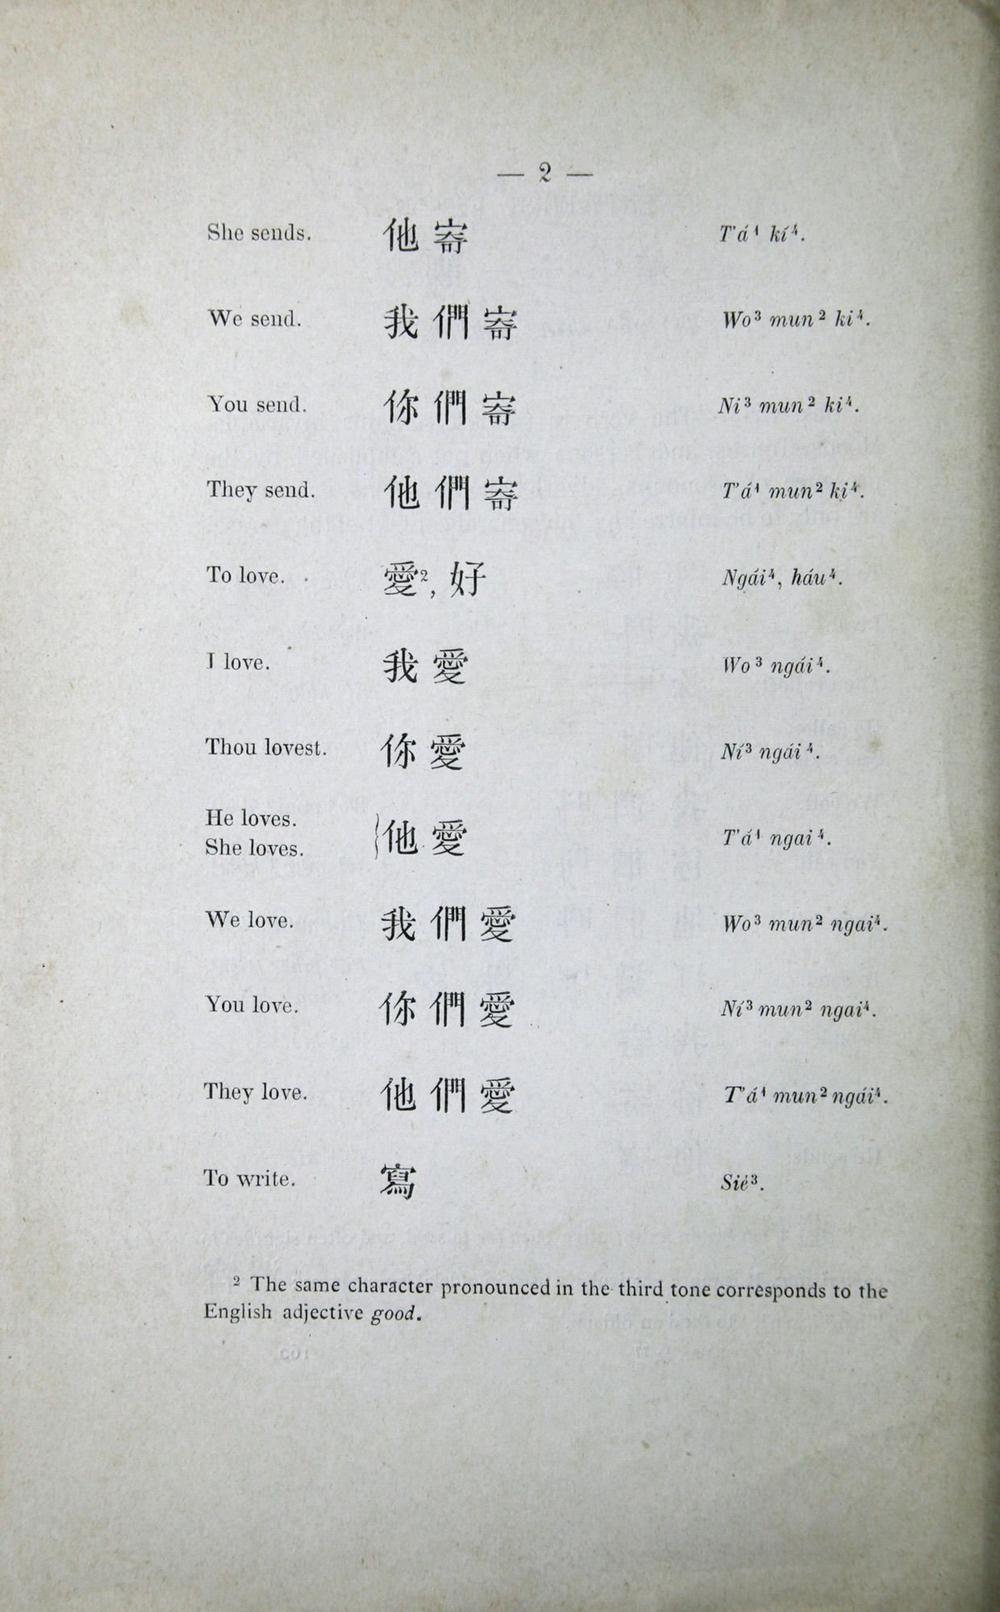 — 2 —
She sends. 他寄 T'á¹ kí⁴.
We send. 我們寄 Wo³ mun² ki⁴.
You send. 你們寄 Ni³ mun² ki⁴.
They send. 他們寄 T'á¹ mun² ki⁴.
To love. 愛², 好 Ngái⁴, háu⁴.
I love. 我愛 Wo³ ngái⁴.
Thou lovest. 你愛 Ní³ ngái⁴.
He loves.
She loves. } 他愛 T'á¹ ngai⁴.
We love. 我們愛 Wo³ mun² ngai⁴.
You love. 你們愛 Ní³ mun² ngai⁴.
They love. 他們愛 T'á¹ mun² ngái⁴.
To write. 寫 Sié³.
² The same character pronounced in the third tone corresponds to the
English adjective good.